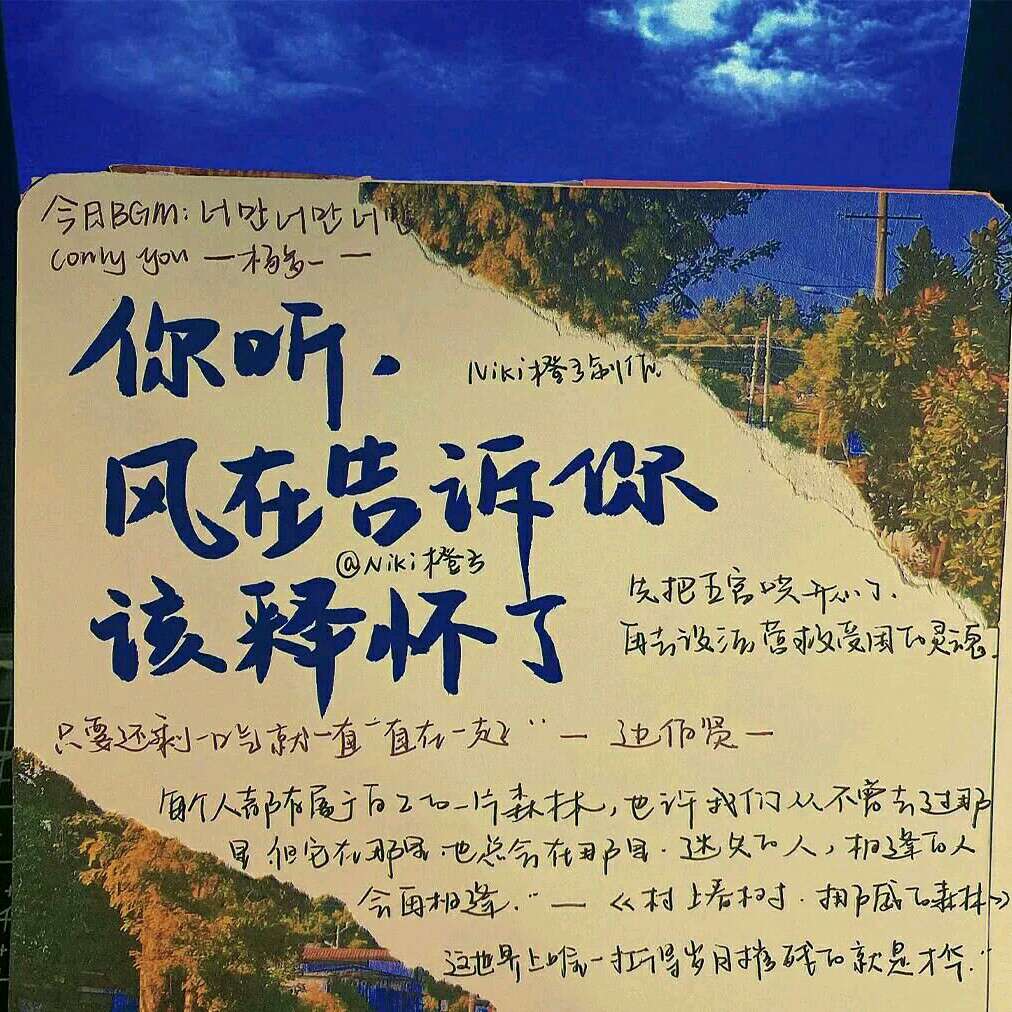 今日BGM: 너만너만너만
(only you 一杨多一 一
你听,
Niki橙子制作
风在告诉你
@Niki橙子
该释怀了
先把五官哄开心了.
再去设法营救受困的灵魂.
只要还剩一口气就一直"直在一起" — 边伯贤 —
每个人都有属于自己的一片森林,也许我们从不曾去过那
里 但它在那里.也总会在那里.迷失的人,相逢的人
会再相逢." — 《村上春树·挪威的森林》
这世界上唯一扛得岁月摧残的就是才华."